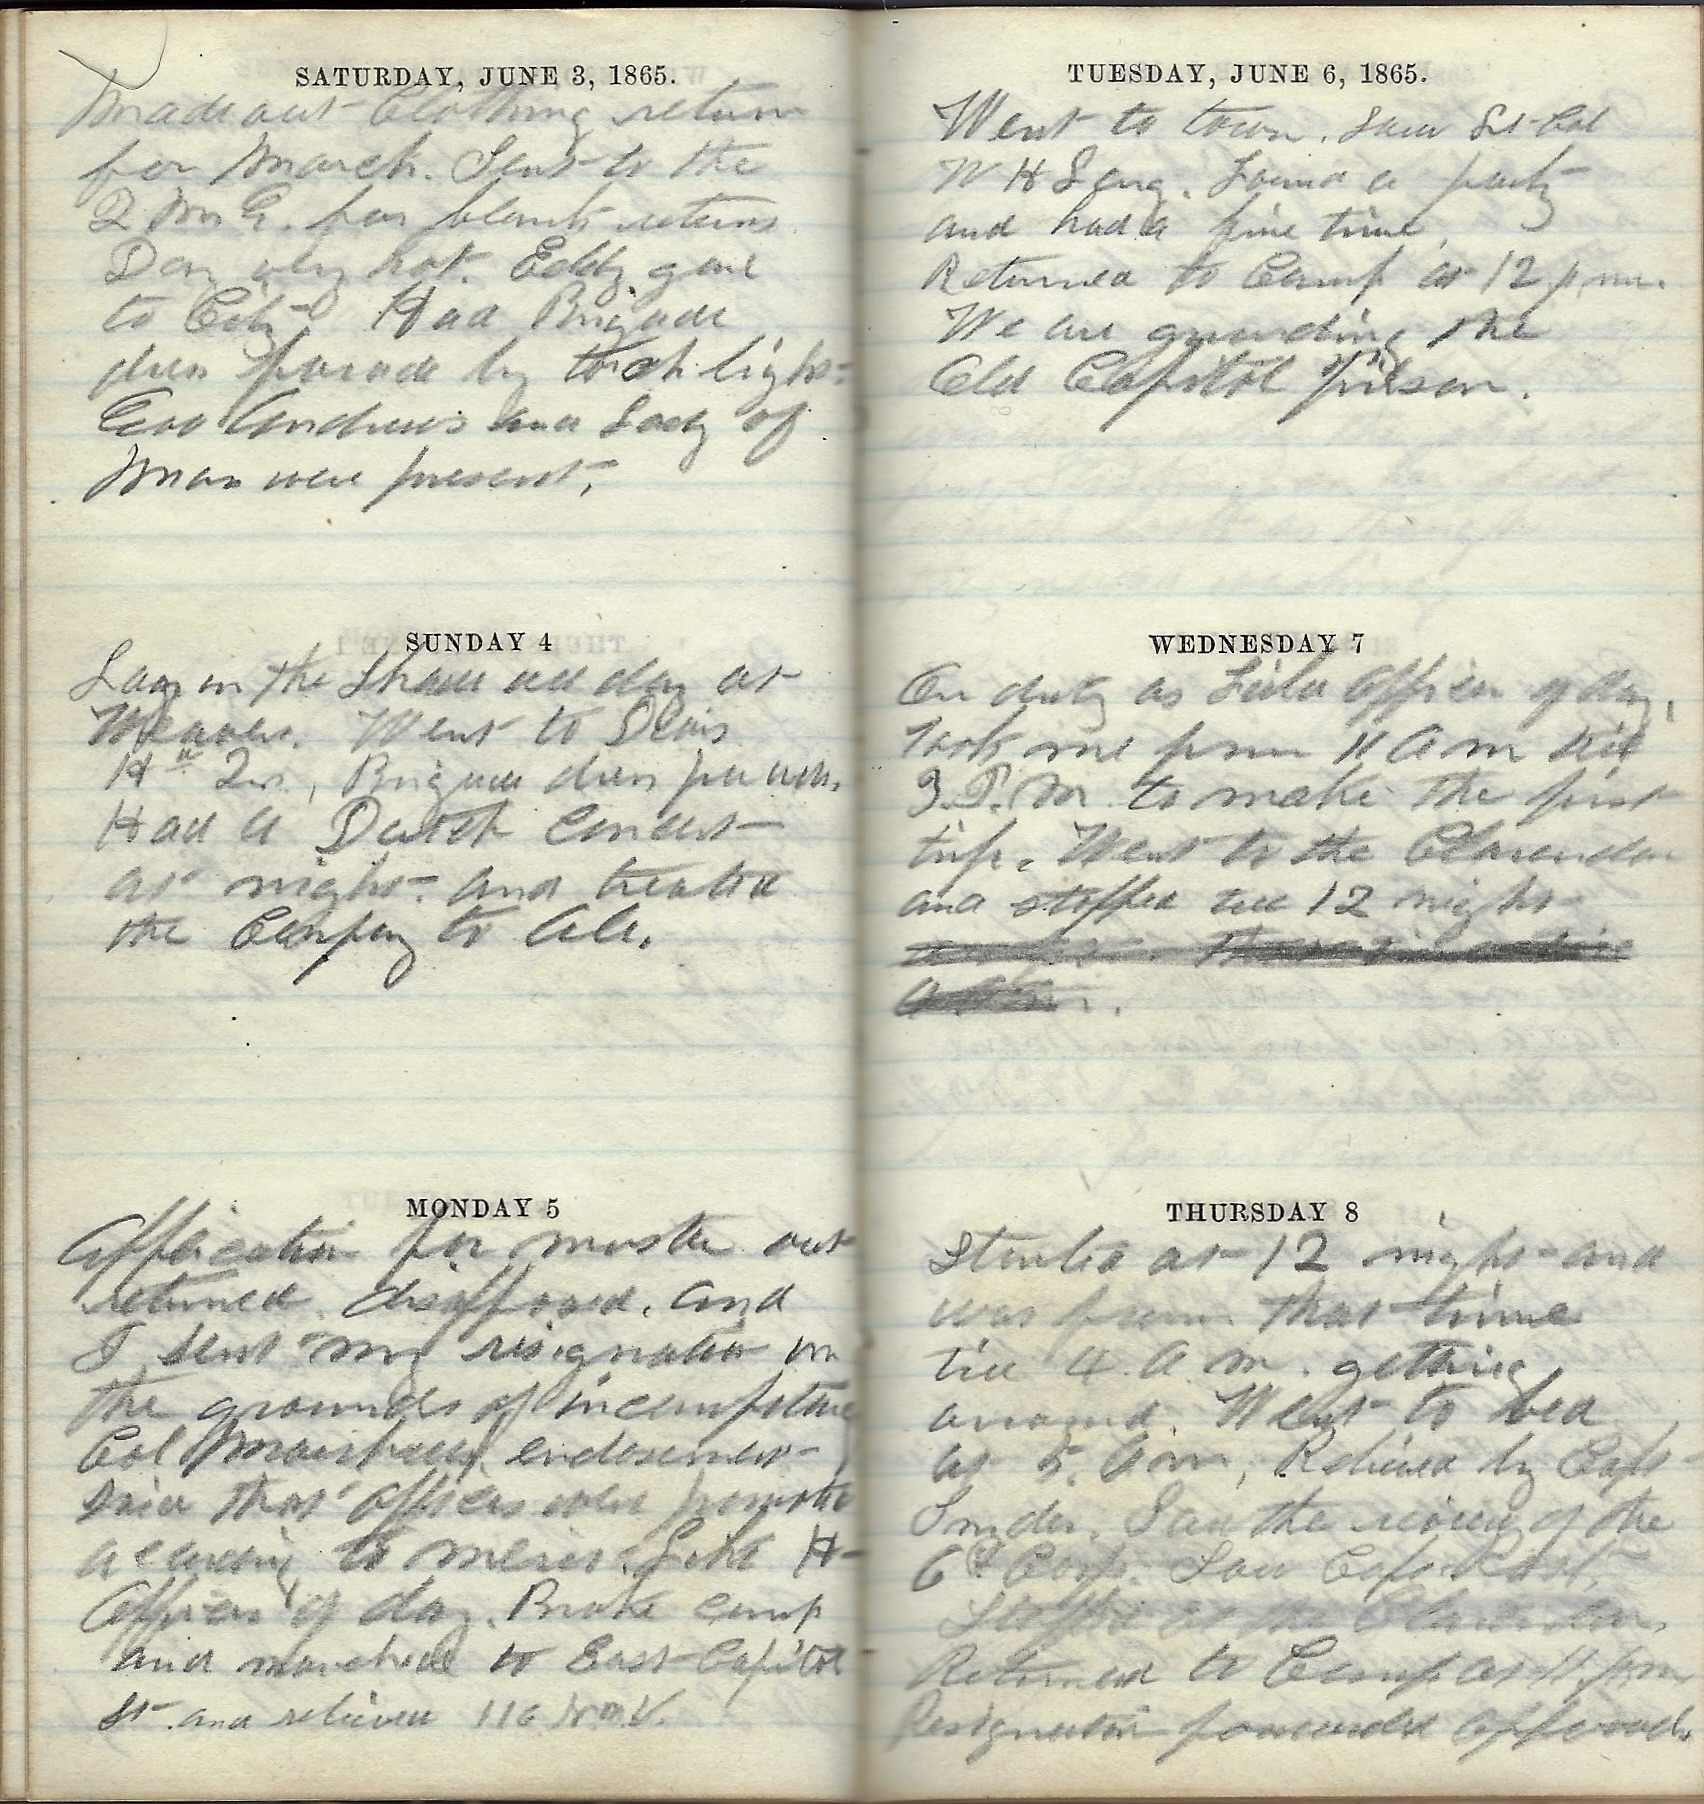 SATURDAY, JUNE 3, 1865.
Made out Clothing return
for March. Sent to the
Q M G. for blank returns
Day very hot. Eddy gone
to City. Had Brigade
dress parade by torch light
Gov Andrews and Lady of
Mass were present.
SUNDAY 4
Lay in the Shade all day at
Weavers. Went to Divis
Hd Qrs, Brigade dress parade.
Had a Dutch Concert
at night and treated
the Company to Ale.
MONDAY 5
Application for muster out
returned disapproved. and
I sent my resignation on
the grounds of incompetency
Col endorsement
said that officers were promoted
according to merit.
Officer of day. Broke camp
and marched to East Capitol
St. and relieved 116
TUESDAY, JUNE 6, 1865.
Went to town. Saw Lt Col
W H Found a party
and had a fine time.
Returned to Camp at 12 p.m.
We are guarding the
Old Capitol Prison.
WEDNESDAY 7
On duty as Field Officer of day,
Took me from 11 A m till
3. P. M. to make the first
trip. Went to the Clarendon
and stopped till 12 night
THURSDAY 8
Started at 12 night and
was from that time
till 4. A m. getting
around. Went to bed
at 5. A m, Relieved by Capt
Snyder. Saw the review of the
6th Corps. Saw Capt
Stopped at the Clarendon.
Returned to Camp at 11. pm
Resignation forwarded approved.